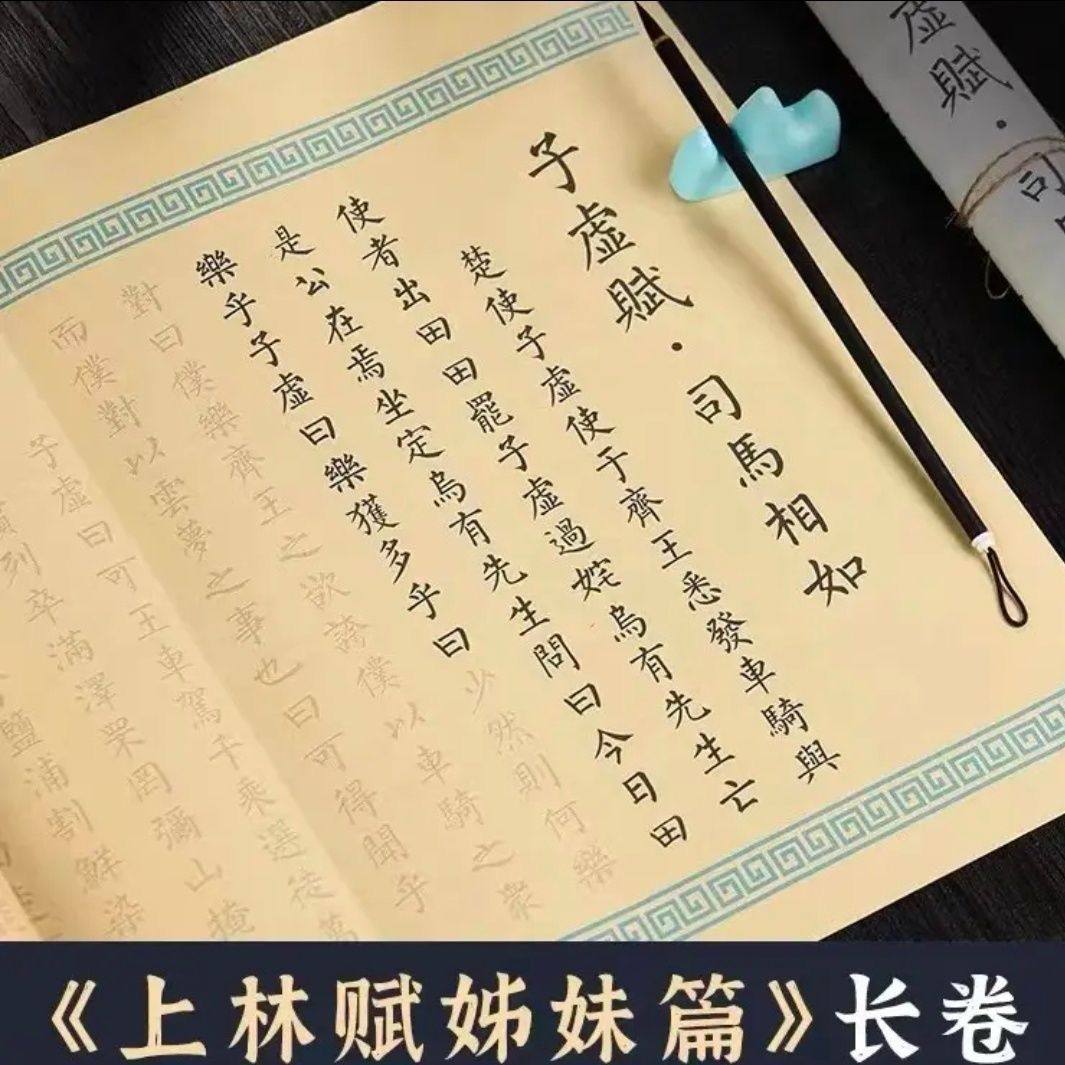 子虚賦·司馬相如
楚使子虚使于齊王悉發車騎與
使者出田田罷子虚過姹烏有先生亡
是公在焉坐定烏有先生問曰今日田
樂乎子虚曰樂獲多乎曰少然則何樂
對曰僕樂齊王之欲誇僕以車騎之衆
而僕對以雲夢之事也曰可得聞乎
子虚曰可王車駕千乘選徒萬
列卒滿澤罘罔彌山掩
鹽浦割鮮染
虚賦·司
《上林赋姊妹篇》长卷